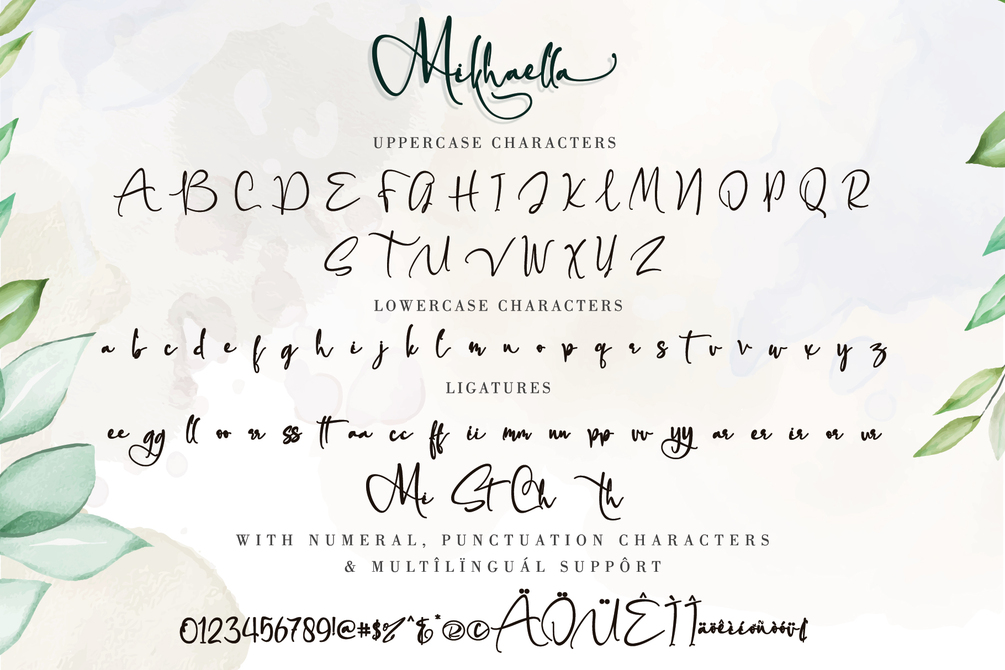 Mikhaella
UPPERCASE CHARACTERS
A B C D E F G H I J K L M N O P Q R
S T U V W X Y Z
LOWERCASE CHARACTERS
a b c d e f g h i j k l m n o p q r s t u v w x y z
LIGATURES
ee gg ll oo rr ss tt aa cc ff ii mm nn pp vv yy ar er ir or ur
Mi St Ch Th
WITH NUMERAL, PUNCTUATION CHARACTERS
& MULTÎLÏNGUÁL SUPPÔRT
0123456789!@#$%^&*®©ÄÖÜÊÌÎ